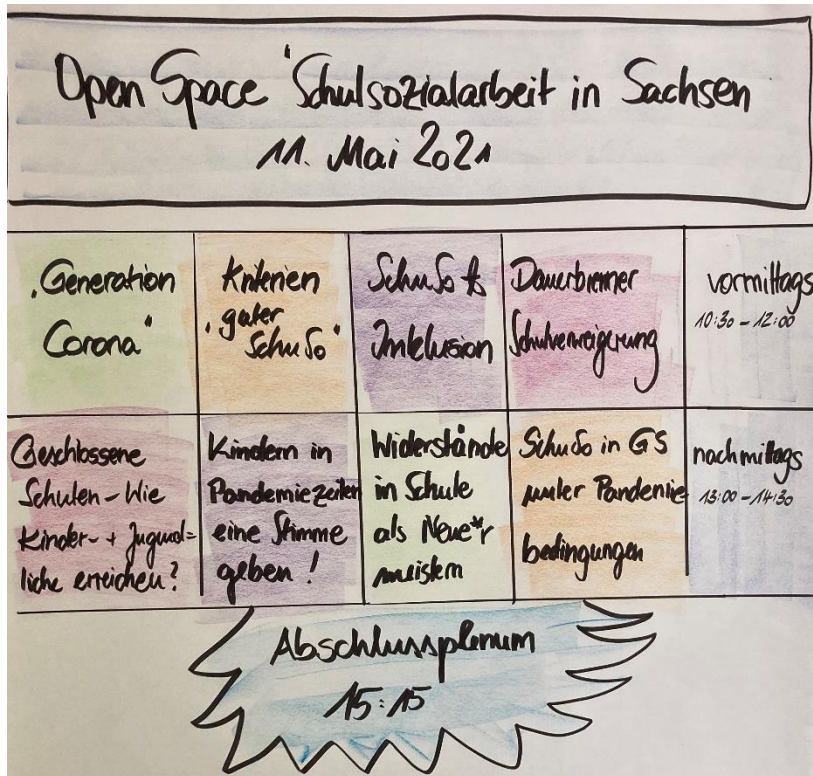 Open Space 'Schulsozialarbeit in Sachsen
11. Mai 2021
"Generation
Corona"
Kriterien
"guter
SchuSo"
SchuSo &
Inklusion
Dauerbrenner
Schulverweigerung
vormittags
10:30 - 12:00
Geschlossene
Schulen - Wie
Kinder- + Jugend=
liche erreichen?
Kindern in
Pandemiezeiten
eine Stimme
geben!
Widerstände
in Schule
als Neue*r
meistern
SchuSo in GS
unter Pandemie
bedingungen
nachmittags
13:00 - 14:30
Abschlussplenum
15:15